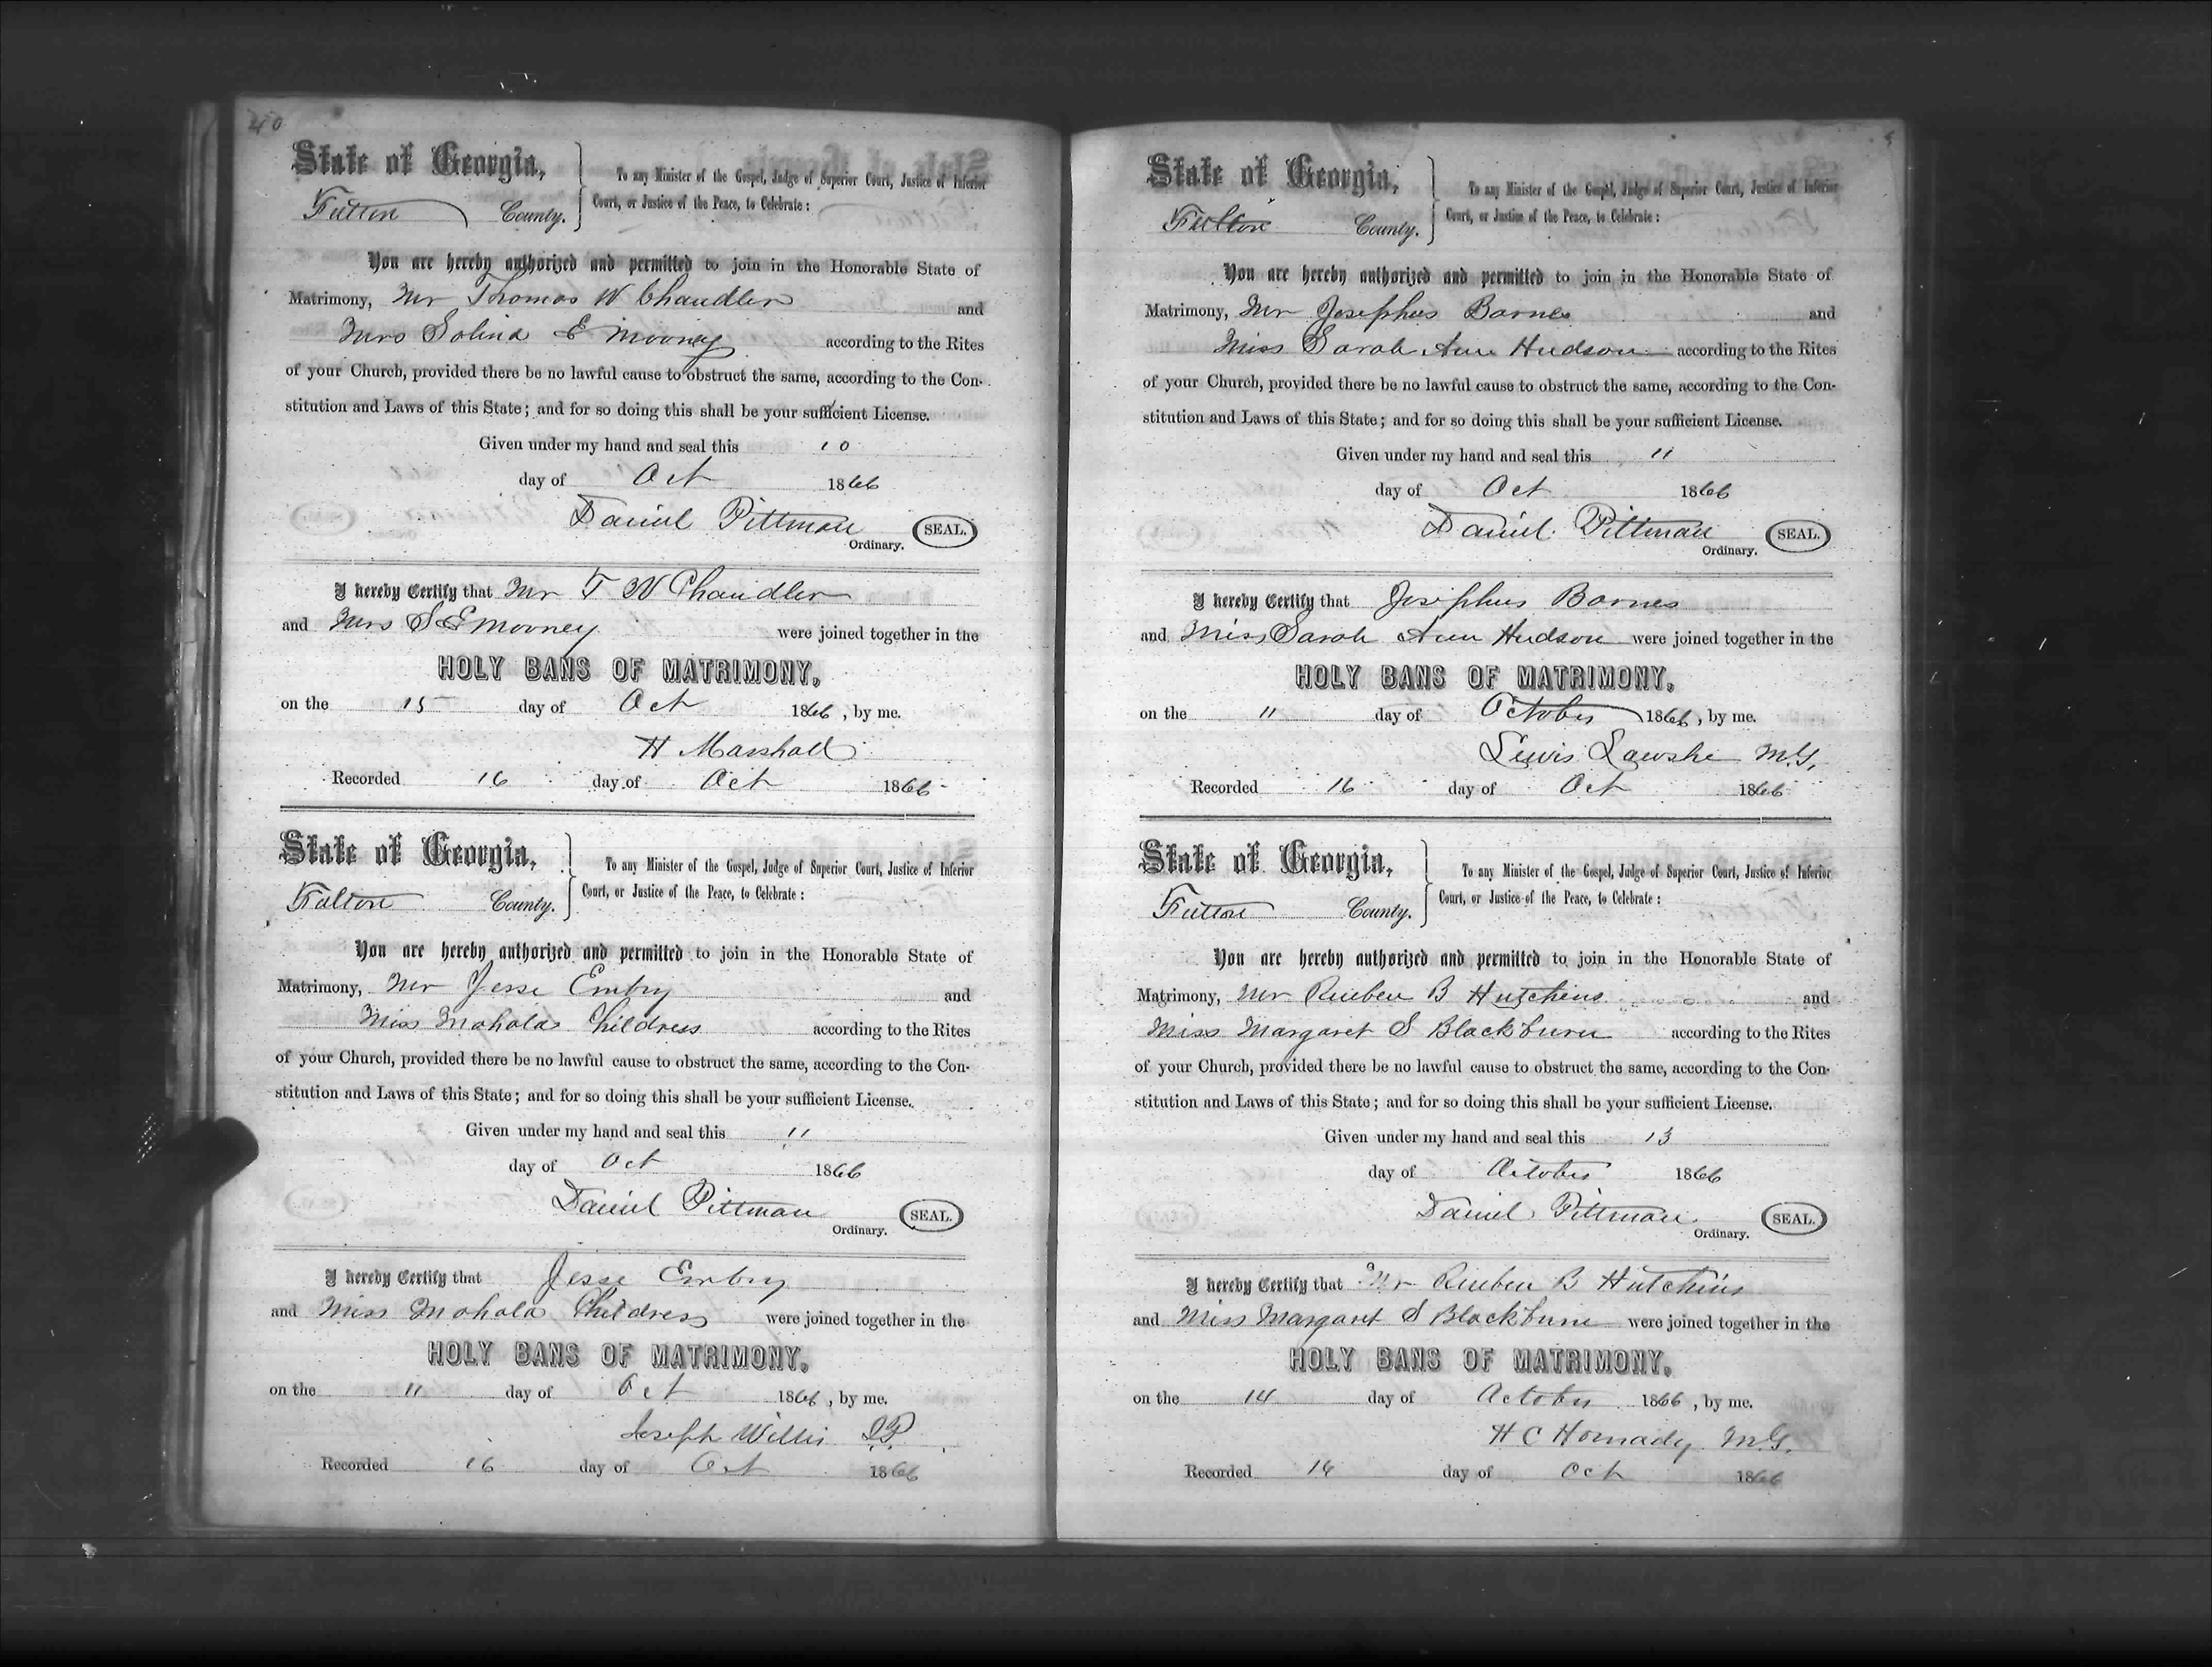 40
State of Georgia,
Fulton County.
To any Minister of the Gospel, Judge of Superior Court, Justice of Inferior
Court, or Justice of the Peace, to Celebrate:
You are hereby authorized and permitted to join in the Honorable State of
Matrimony, Mr Thomas W Chandler and
Mrs Solina E Mooney according to the Rites
of your Church, provided there be no lawful cause to obstruct the same, according to the Con-
stitution and Laws of this State; and for so doing this shall be your sufficient License.
Given under my hand and seal this 10
day of Oct 1866
Daniel Pittman SEAL.
Ordinary.
I hereby Certify that Mr T W Chandler
and Mrs S E Mooney were joined together in the
HOLY BANS OF MATRIMONY,
on the 15 day of Oct 1866, by me.
H Marshall
Recorded 16 day of Oct 1866
State of Georgia,
Fulton County.
To any Minister of the Gospel, Judge of Superior Court, Justice of Inferior
Court, or Justice of the Peace, to Celebrate:
You are hereby authorized and permitted to join in the Honorable State of
Matrimony, Mr Jesse Embry and
Miss Mahala Childress according to the Rites
of your Church, provided there be no lawful cause to obstruct the same, according to the Con-
stitution and Laws of this State; and for so doing this shall be your sufficient License.
Given under my hand and seal this 11
day of Oct 1866
Daniel Pittman SEAL.
Ordinary.
I hereby Certify that Jesse Embry
and Miss Mahala Childress were joined together in the
HOLY BANS OF MATRIMONY,
on the 11 day of Oct 1866, by me.
Joseph Willis J.P.
Recorded 16 day of Oct 1866
State of Georgia,
Fulton County.
To any Minister of the Gospel, Judge of Superior Court, Justice of Inferior
Court, or Justice of the Peace, to Celebrate:
You are hereby authorized and permitted to join in the Honorable State of
Matrimony, Mr Josephus Barnes and
Miss Sarah Ann Hudson according to the Rites
of your Church, provided there be no lawful cause to obstruct the same, according to the Con-
stitution and Laws of this State; and for so doing this shall be your sufficient License.
Given under my hand and seal this 11
day of Oct 1866
Daniel Pittman SEAL.
Ordinary.
I hereby Certify that Josephus Barnes
and Miss Sarah Ann Hudson were joined together in the
HOLY BANS OF MATRIMONY,
on the 11 day of October 1866, by me.
Lewis Lawshe M.G.
Recorded 16 day of Oct 1866
State of Georgia,
Fulton County.
To any Minister of the Gospel, Judge of Superior Court, Justice of Inferior
Court, or Justice of the Peace, to Celebrate:
You are hereby authorized and permitted to join in the Honorable State of
Matrimony, Mr Reuben B Hutchins and
Miss Margaret S Blackburn according to the Rites
of your Church, provided there be no lawful cause to obstruct the same, according to the Con-
stitution and Laws of this State; and for so doing this shall be your sufficient License.
Given under my hand and seal this 13
day of October 1866
Daniel Pittman SEAL.
Ordinary.
I hereby Certify that Mr Reuben B Hutchins
and Miss Margaret S Blackburn were joined together in the
HOLY BANS OF MATRIMONY,
on the 14 day of October 1866, by me.
H C Hornady M.G.
Recorded 16 day of Oct 1866